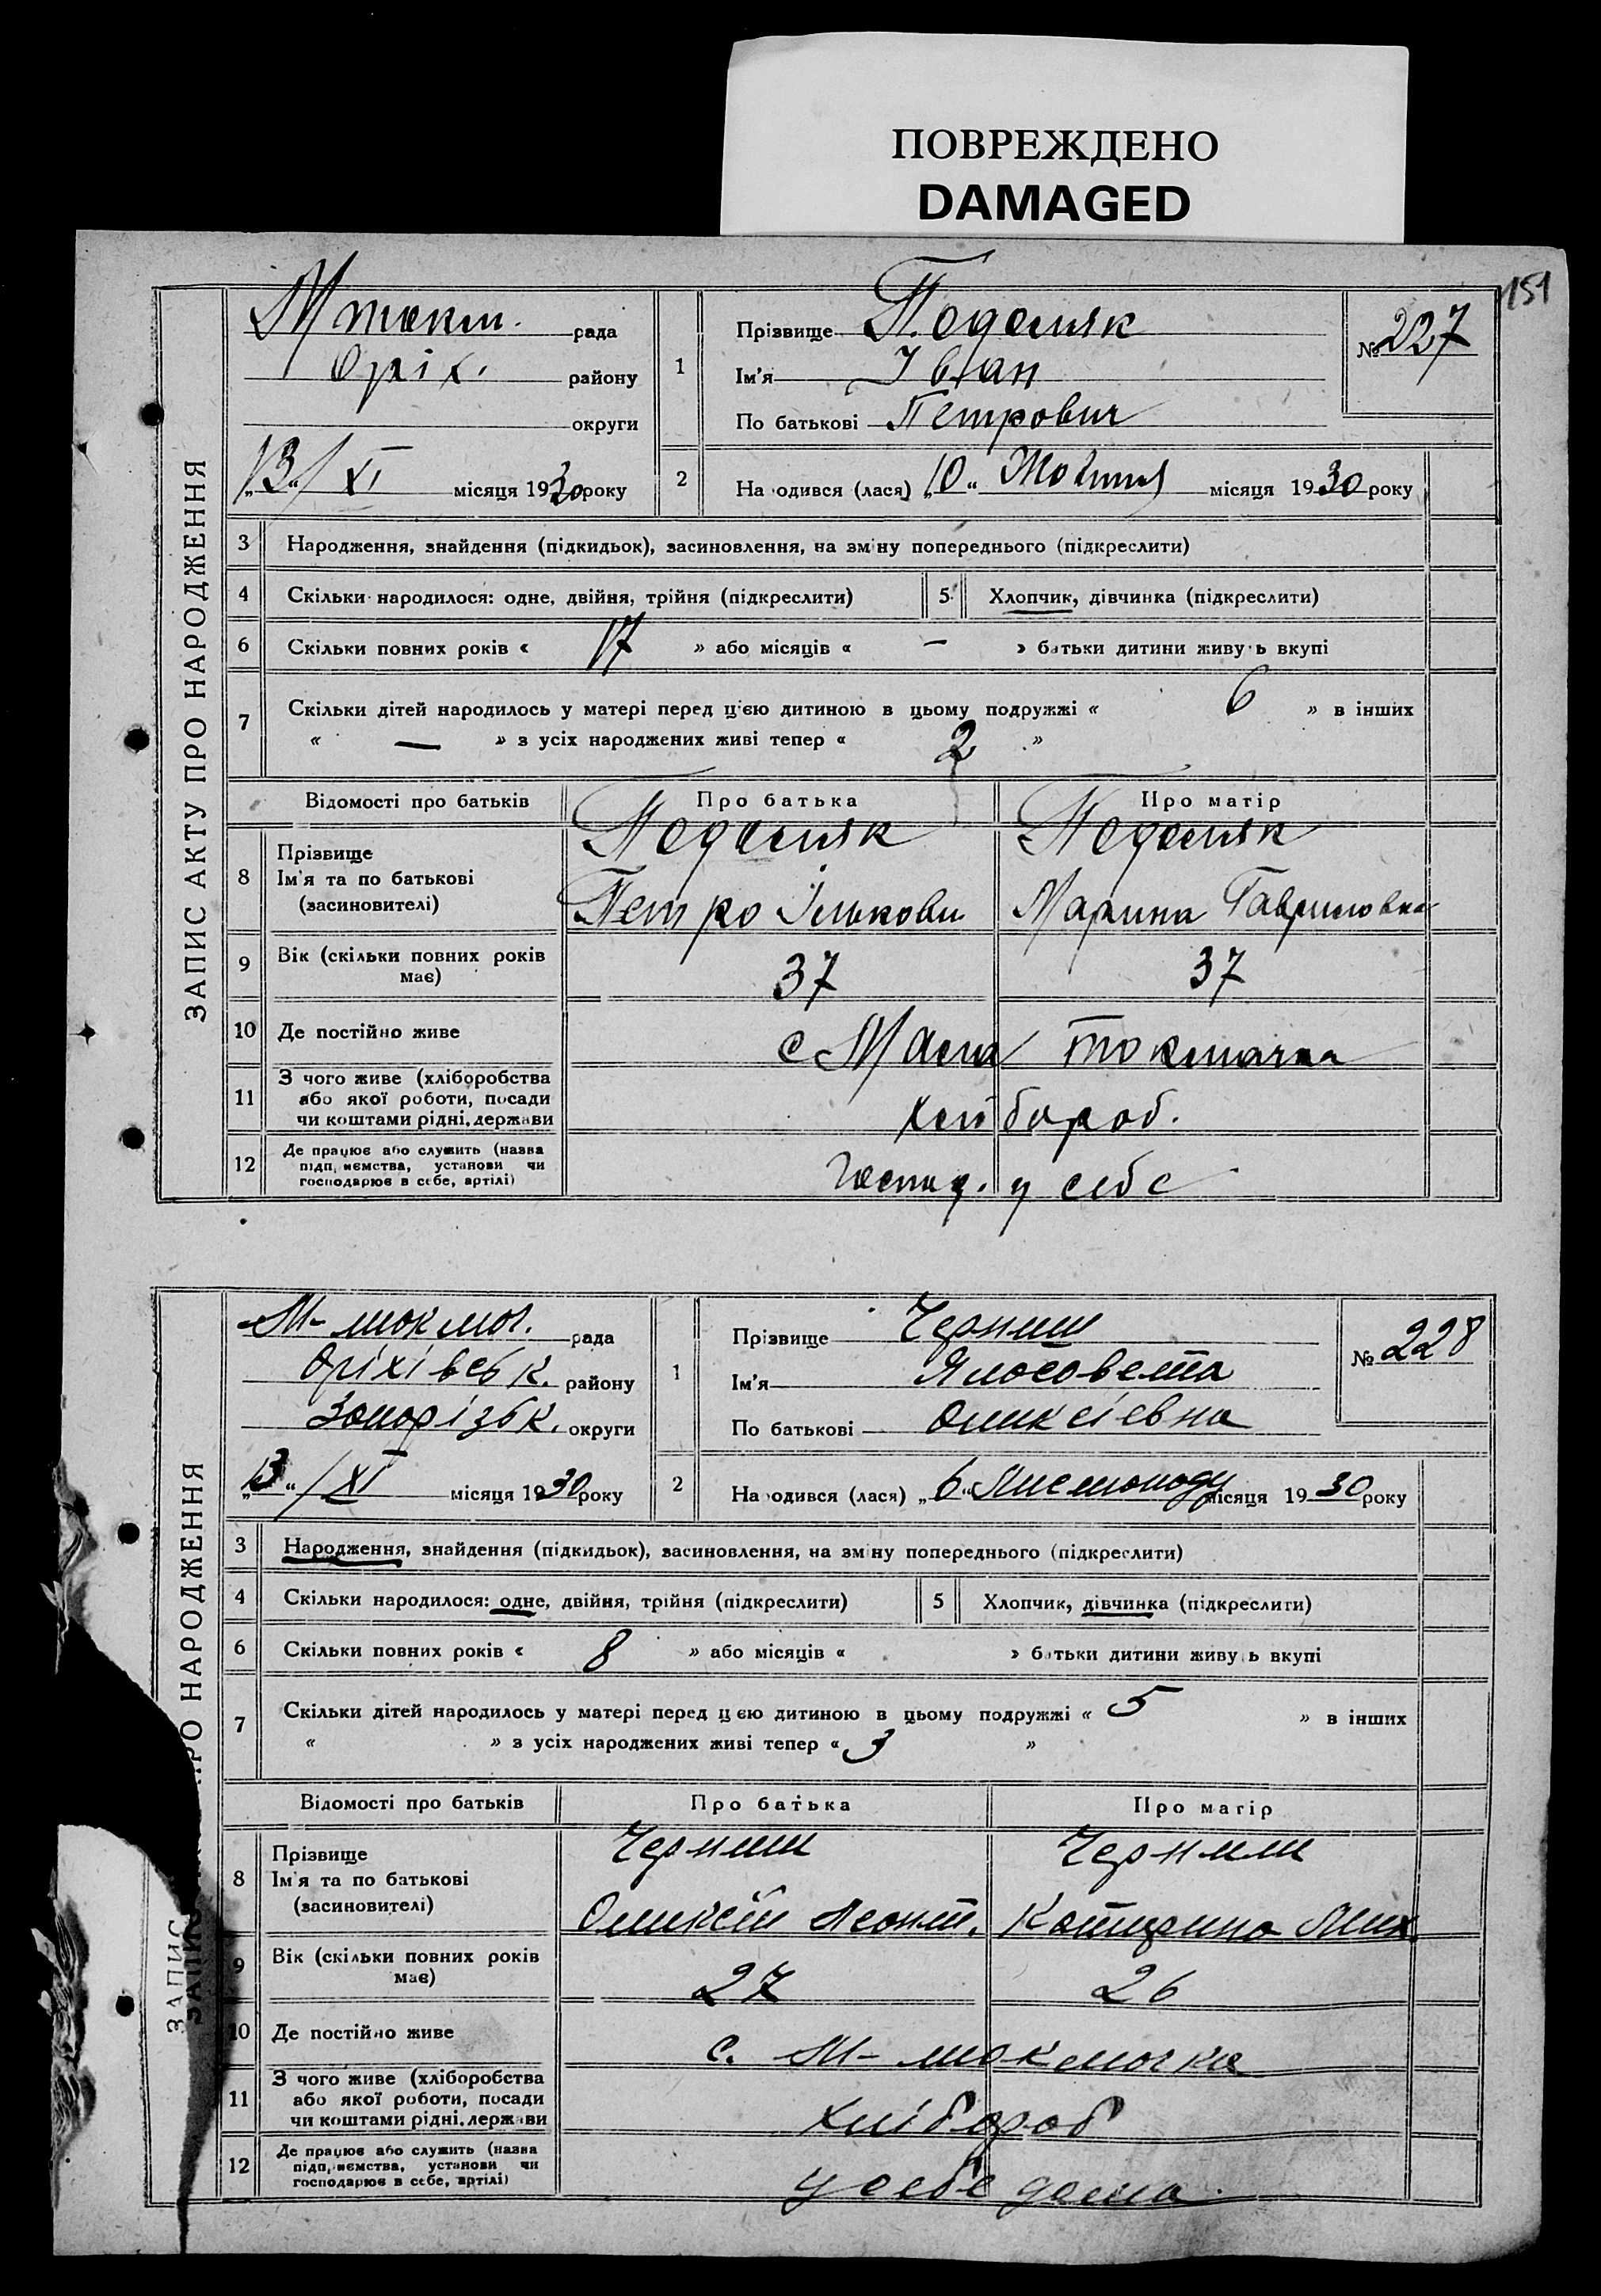 ПОВРЕЖДЕНО
DAMAGED
151
ЗАПИС АКТУ ПРО НАРОДЖЕННЯ
М токм. рада
Оріх. району
округи
„13“/XI місяця 1930 року
1
Прізвище Подоляк
Ім'я Іван
По батькові Петрович
№ 227
2
На одився (лася) „10“ Жовтня місяця 1930 року
3 Народження, знайдення (підкидьок), засиновлення, на зм ну попереднього (підкреслити)
4 Скільки народилося: одне, двійня, трійня (підкреслити) 5 Хлопчик, дівчинка (підкреслити)
6 Скільки повних років « 17 » або місяців « — » батьки дитини живу ь вкупі
7 Скільки дітей народилось у матері перед ц'єю дитиною в цьому подружжі « 6 » в інших
« — » з усіх народжених живі тепер « 2 »
Відомості про батьків Про батька Про матір
8 Прізвище
Ім'я та по батькові
(засиновителі)
Подоляк Подоляк
Петро Ількови Марина Гавриловна
9 Вік (скільки повних років
має)
37 37
10 Де постійно живе с Мала Токмачка
11 З чого живе (хліборобства
або якої роботи, посади
чи коштами рідні, держави
хлібороб.
12 Де працює або служить (назва
підп, иємства, установи чи
господарює в себе, артілі)
Господ. у себе
ЗАПИС ПРО НАРОДЖЕННЯ
М-токмач. рада
Оріхівськ. району
Запорізьк. округи
„13“/XI місяця 1930 року
1
Прізвище Черниш
Ім'я Ялосовета
По батькові Оликсіевна
№ 228
2
На одився (лася) „6“ Листопаду місяця 1930 року
3 Народження, знайдення (підкидьок), засиновлення, на зм ну попереднього (підкреслити)
4 Скільки народилося: одне, двійня, трійня (підкреслити) 5 Хлопчик, дівчинка (підкреслити)
6 Скільки повних років « 8 » або місяців « » батьки дитини живу ь вкупі
7 Скільки дітей народилось у матері перед ц єю дитиною в цьому подружжі « 5 » в інших
« » з усіх народжених живі тепер « 3 »
Відомості про батьків Про батька Про матір
8 Прізвище
Ім'я та по батькові
(засиновителі)
Черниш Черниш
Оликсій Леонт. Катирина Мих.
9 Вік (скільки повних років
має)
27 26
10 Де постійно живе с. М-токмачка
11 З чого живе (хліборобства
або якої роботи, посади
чи коштами рідні, держави
хлібороб
12 Де працює або служить (назва
підп, иємства, установи чи
господарює в себе, артілі)
у себе дома